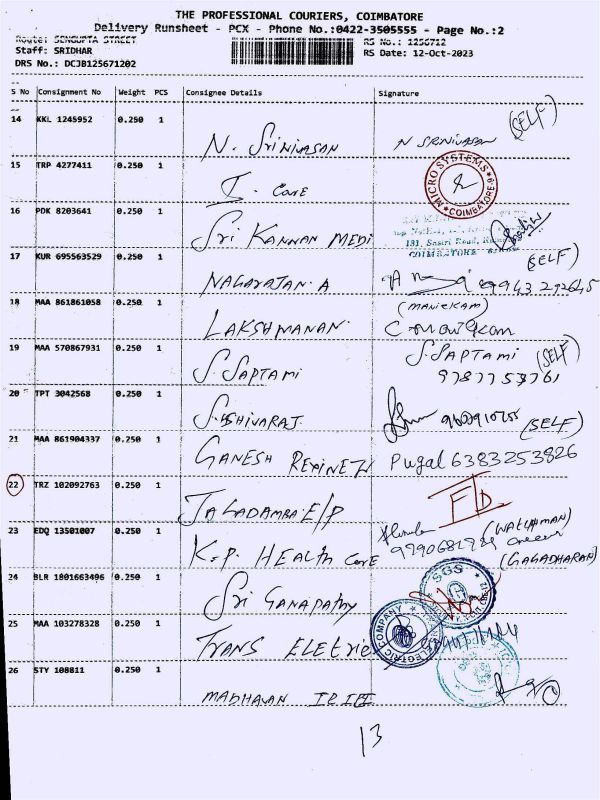 THE PROFESSIONAL COURIERS, COIMBATORE
Delivery Runsheet - PCX - Phone No.:0422-3505555 - Page No.:2
Route: SENGUPTA STREET
Staff: SRIDHAR
DRS No.: DCJB125671202
RS No.: 1256712
RS Date: 12-Oct-2023
S No Consignment No Weight PCS Consignee Details Signature
14 KKL 1245952 0.250 1 N. SRINIVASAN N SRINIVASAN (SELF)
15 TRP 4277411 0.250 1 I. Care MICRO SYSTEMS COIMBATORE-9
16 PDK 8203641 0.250 1 Sri KANNAN MEDI
181, Sastri Road,
COIMBATORE
17 KUR 695563529 0.250 1 NAGARAJAN. A (SELF)
18 MAA 861861058 0.250 1 LAKSHMANAN. (MANICKAM)
19 MAA 570867931 0.250 1 S. SAPTAMI S. SAPTAMI (SELF)
9787753761
20 TPT 3042568 0.250 1 (SELF)
21 MAA 861904337 0.250 1 GANESH Pugal 6383253826
22 TRZ 102092763 0.250 1 JAGADAMBA E/P
23 EDQ 13501007 0.250 1 K.P. HEALTH Care (WATCHMAN)
(GAGADHARAN)
24 BLR 1801663496 0.250 1 Sri GANAPATHY SGS
25 MAA 103278328 0.250 1 TRANS ELETRIC ELECTRIC COMPANY
26 STY 108811 0.250 1 MADHAVAN
13